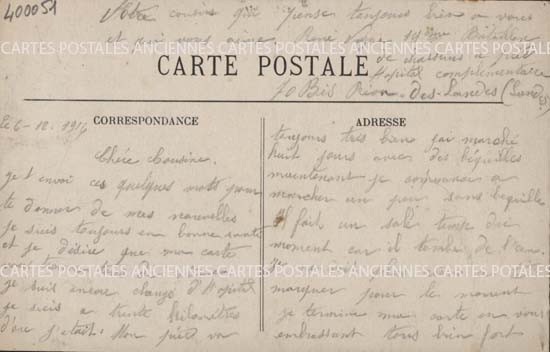 400051
Votre cousin qui pense toujours bien a vous
et qui vous aime René
Bataillon
de chasseurs a pied
Hopital complémentaire
70 Bis Rion-des-Landes (Landes)
CARTE POSTALE
CORRESPONDANCE
le 6-12-1916
Chère Cousine.
je t envoi ces quelques mots pour
te donner de mes nouvelles
je suis toujours en bonne santé
et je désire que ma carte
je suit encore changé d'Hopital
je suis a trente kilomètres
d'ou j'étais. Mon pied va
ADRESSE
toujours très bien j'ai marché
huit jours avec des béquilles
maintenant je commence a
marcher un peu sans béquille
Il fait un sale temps en ce
moment car il tombe de l'eau.
marquer pour le moment
je termine ma carte en vous
embrassant tous bien fort
CARTES POSTALES ANCIENNES CARTES POSTALES ANCIENNES
CARTES POSTALES ANCIENNES CARTES POSTALES ANCIENNES